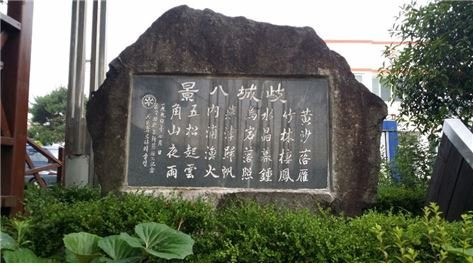 岐城八景
黃沙落雁
竹林棲鳳
水晶暮鐘
烏岩落照
燕津歸帆
內浦漁火
五松起雲
角山夜雨